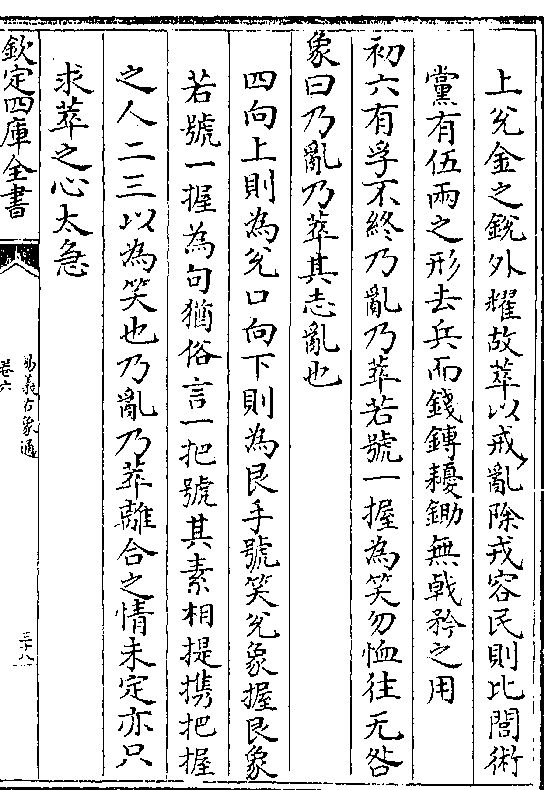 上兊金之銳外耀故萃以戒亂除戎容民則比閭術
黨有伍兩之形去兵而錢鎛耰鋤無戟矜之用
初六有孚不終乃亂乃萃若號一握為笑勿恤往无咎
象曰乃亂乃萃其志亂也
四向上則為兊口向下則為艮手號笑兊象握艮象
若號一握為句猶俗言一把號其素相提攜把握
之人二三以為笑也乃亂乃萃離合之情未定亦只
求萃之心太急
欽定四庫全書
易義古象通
卷六
三十八